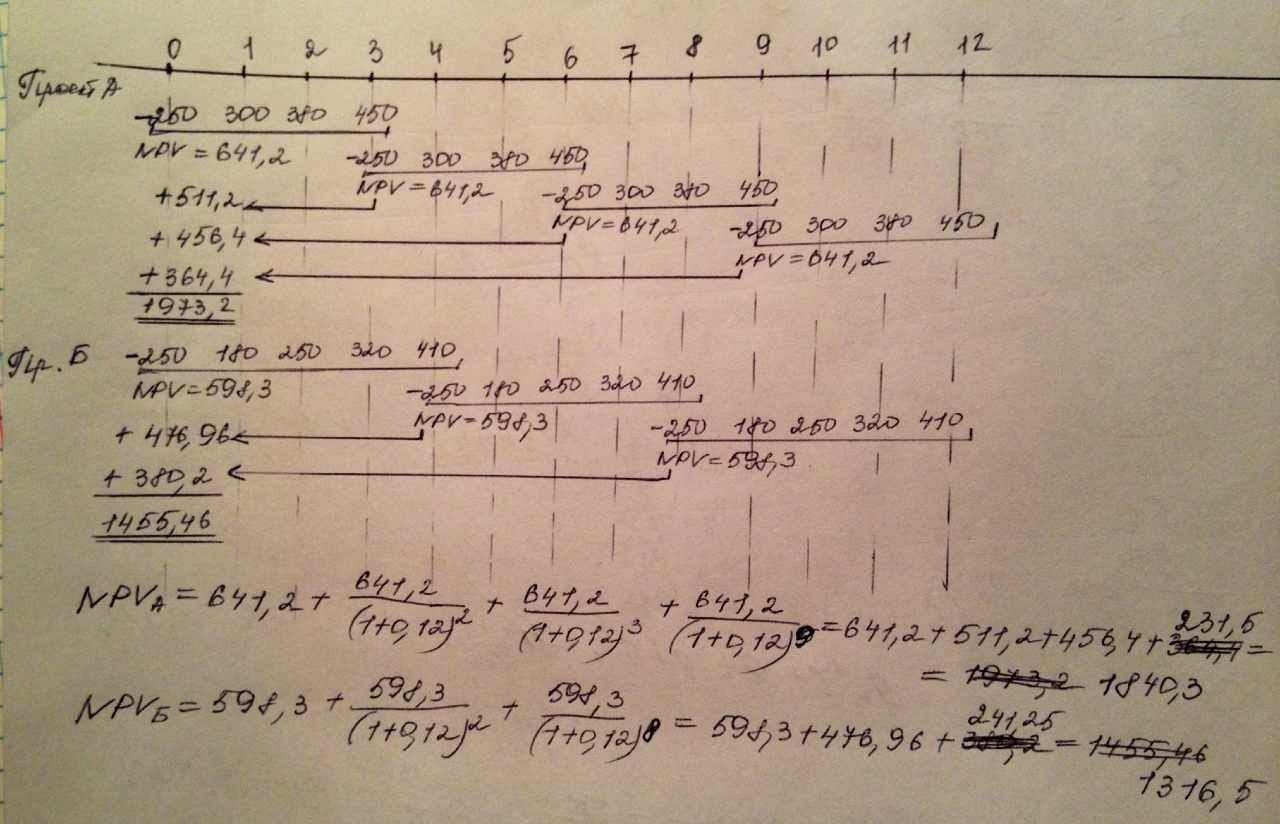 0 1 2 3 4 5 6 7 8 9 10 11 12
Проект А
-250 300 380 450
NPV = 641,2
-250 300 380 450
NPV = 641,2
+511,2
-250 300 380 450
NPV = 641,2
+ 456,4
-250 300 380 450
NPV = 641,2
+ 364,4
1973,2
Пр. Б
-250 180 250 320 410
NPV = 598,3
-250 180 250 320 410
NPV = 598,3
+ 476,96
-250 180 250 320 410
NPV = 598,3
+ 380,2
1455,46
NPVА = 641,2 + 641,2/(1+0,12)² + 641,2/(1+0,12)³ + 641,2/(1+0,12)⁹ = 641,2 + 511,2 + 456,4 + 364,4 231,5 =
= 1973,2 1840,3
NPVБ = 598,3 + 598,3/(1+0,12)² + 598,3/(1+0,12)⁸ = 598,3 + 476,96 + 380,2 241,25 = 1455,46
1316,5